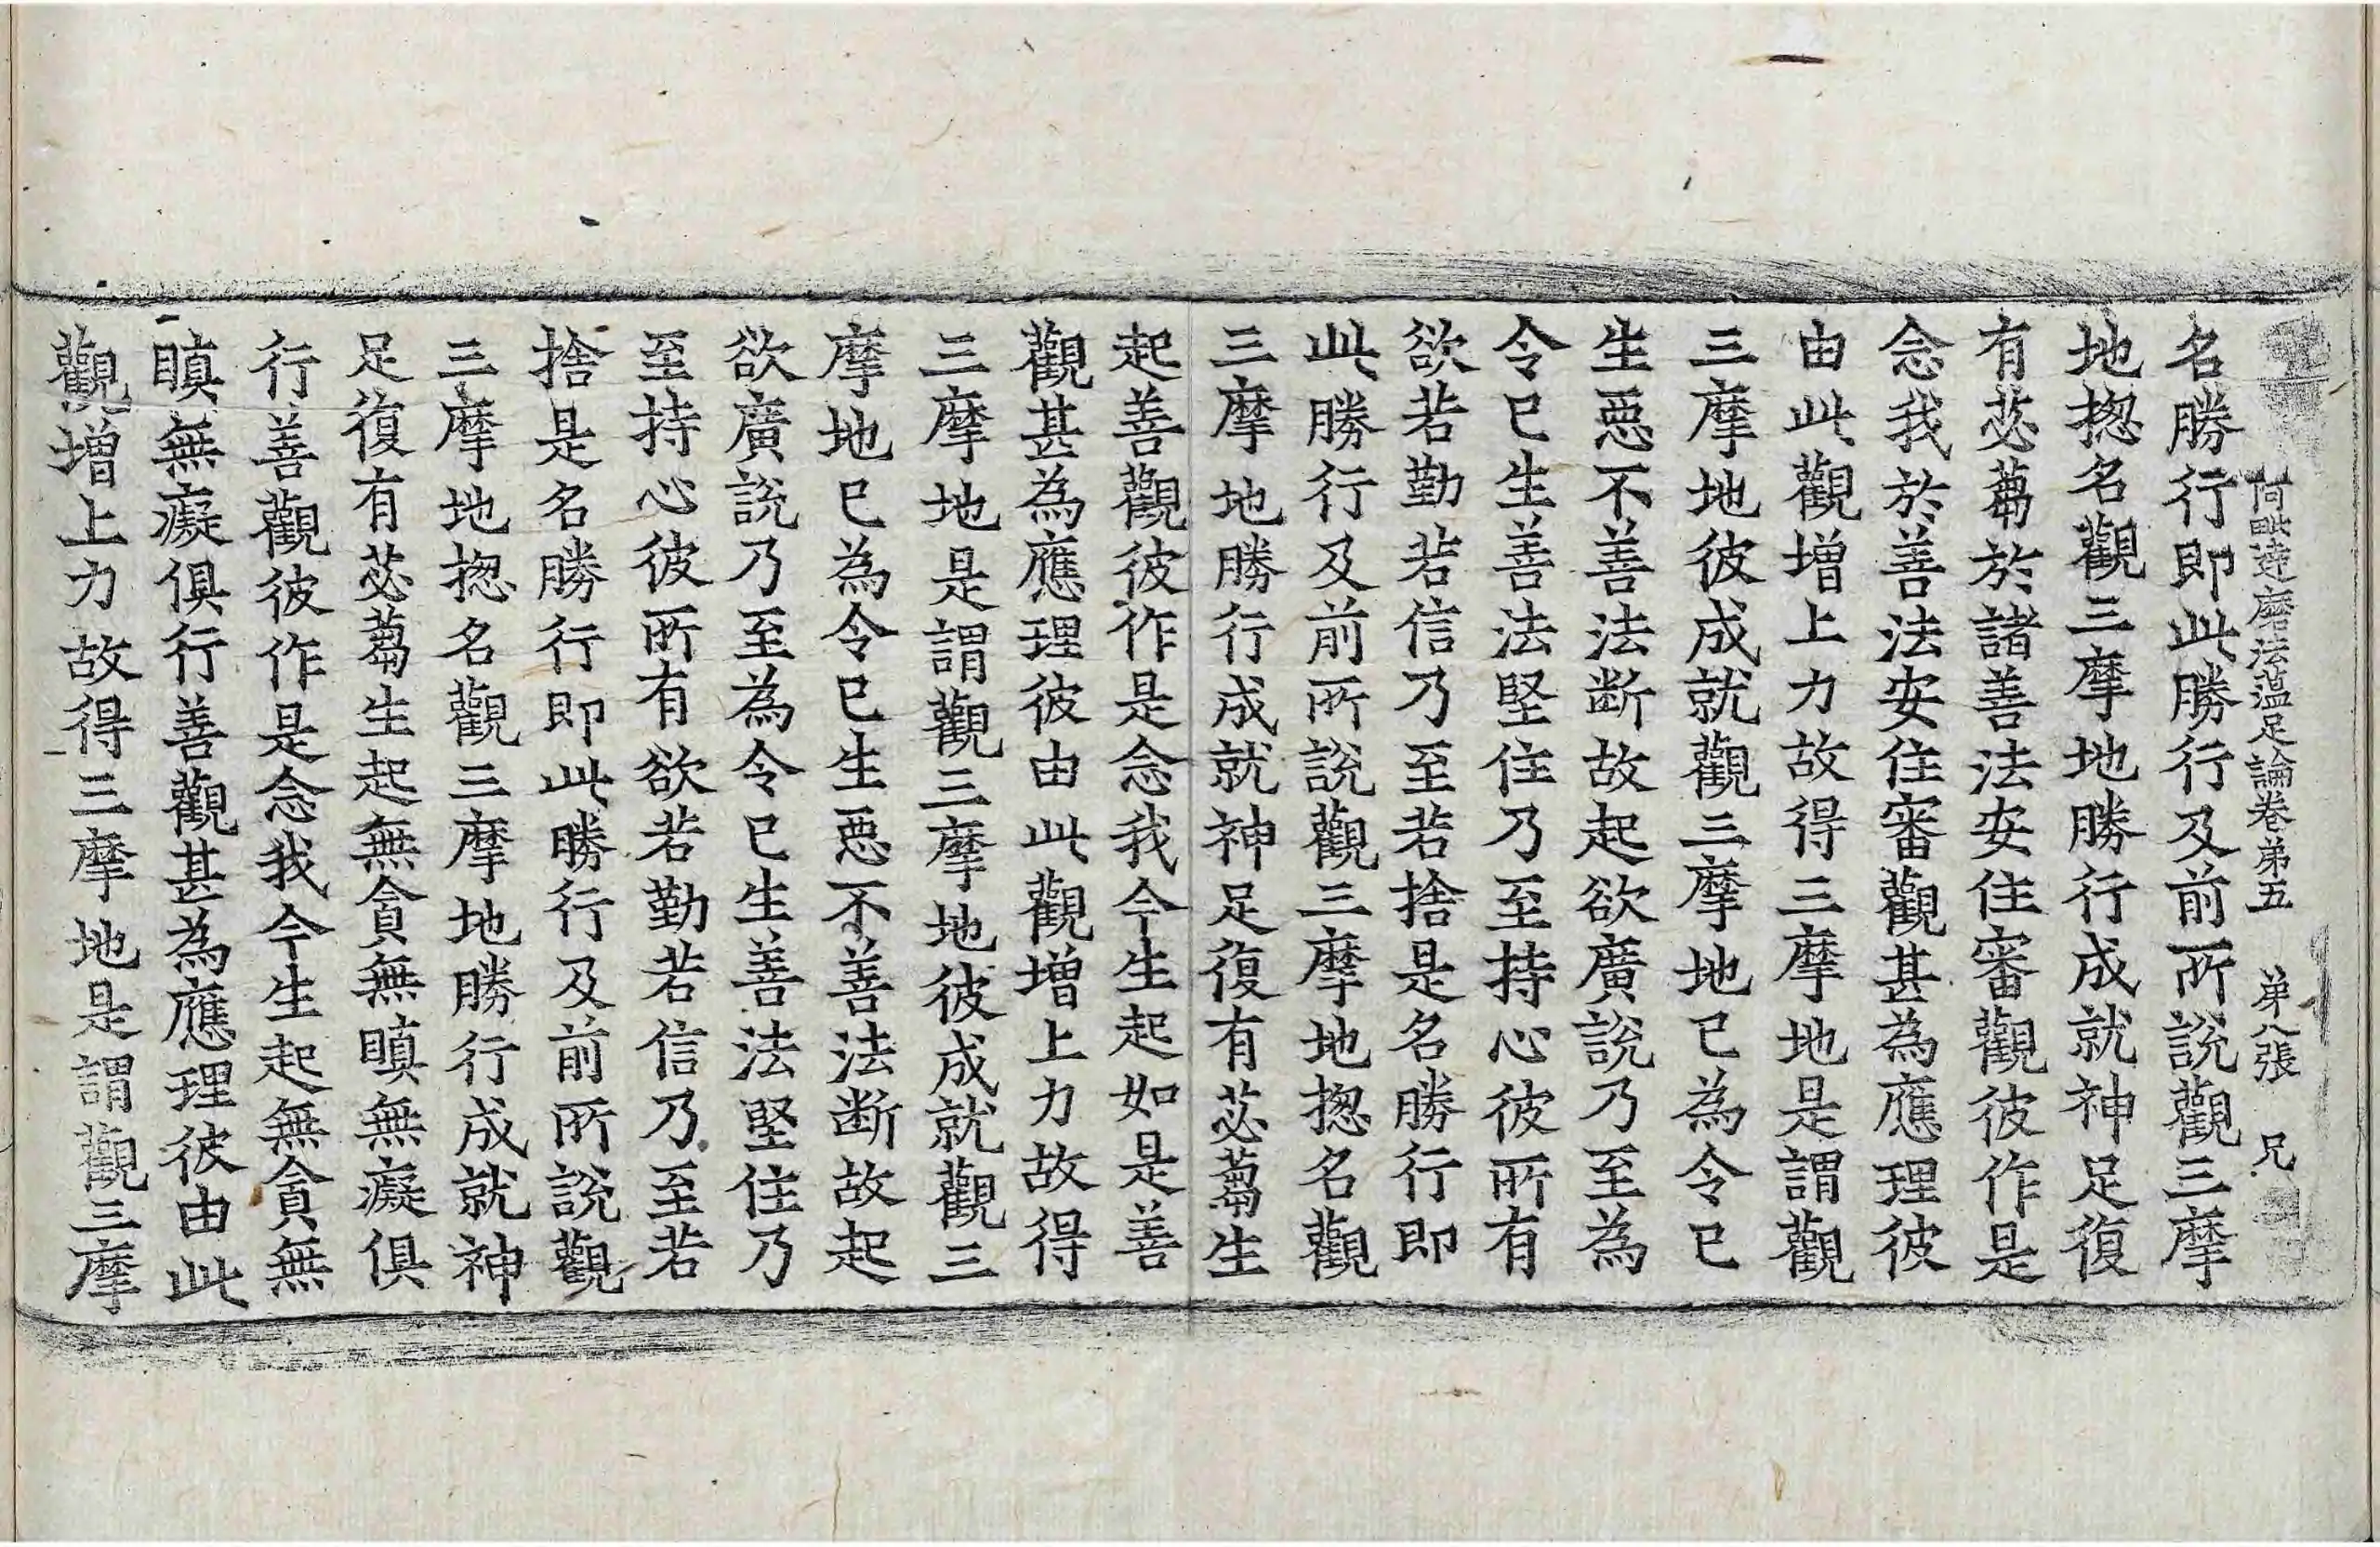 阿毗達磨法蘊足論卷弟五　弟八張　兄
名勝行即此勝行及前所說觀三摩
地揔名觀三摩地勝行成就神足復
有苾蒭於諸善法安住審觀彼作是
念我於善法安住審觀甚為應理彼
由此觀增上力故得三摩地是謂觀
三摩地彼成就觀三摩地已為令已
生惡不善法断故起欲廣說乃至為
令已生善法堅住乃至持心彼所有
欲若勤若信乃至若捨是名勝行即
此勝行及前所說觀三摩地揔名觀
三摩地勝行成就神足復有苾蒭生
起善觀彼作是念我今生起如是善
觀甚為應理彼由此觀增上力故得
三摩地是謂觀三摩地彼成就觀三
摩地已為令已生惡不善法断故起
欲廣說乃至為令已生善法堅住乃
至持心彼所有欲若勤若信乃至若
捨是名勝行即此勝行及前所說觀
三摩地揔名觀三摩地勝行成就神
足復有苾蒭生起無貪無瞋無癡俱
行善觀彼作是念我今生起無貪無
瞋無癡俱行善觀甚為應理彼由此
觀增上力故得三摩地是謂觀三摩